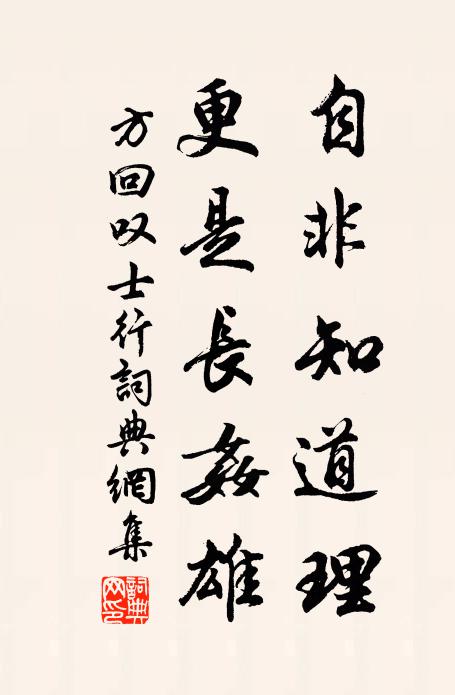 自非知道理
更是長姦雄
方回叹士行詞典網集
詞典网印